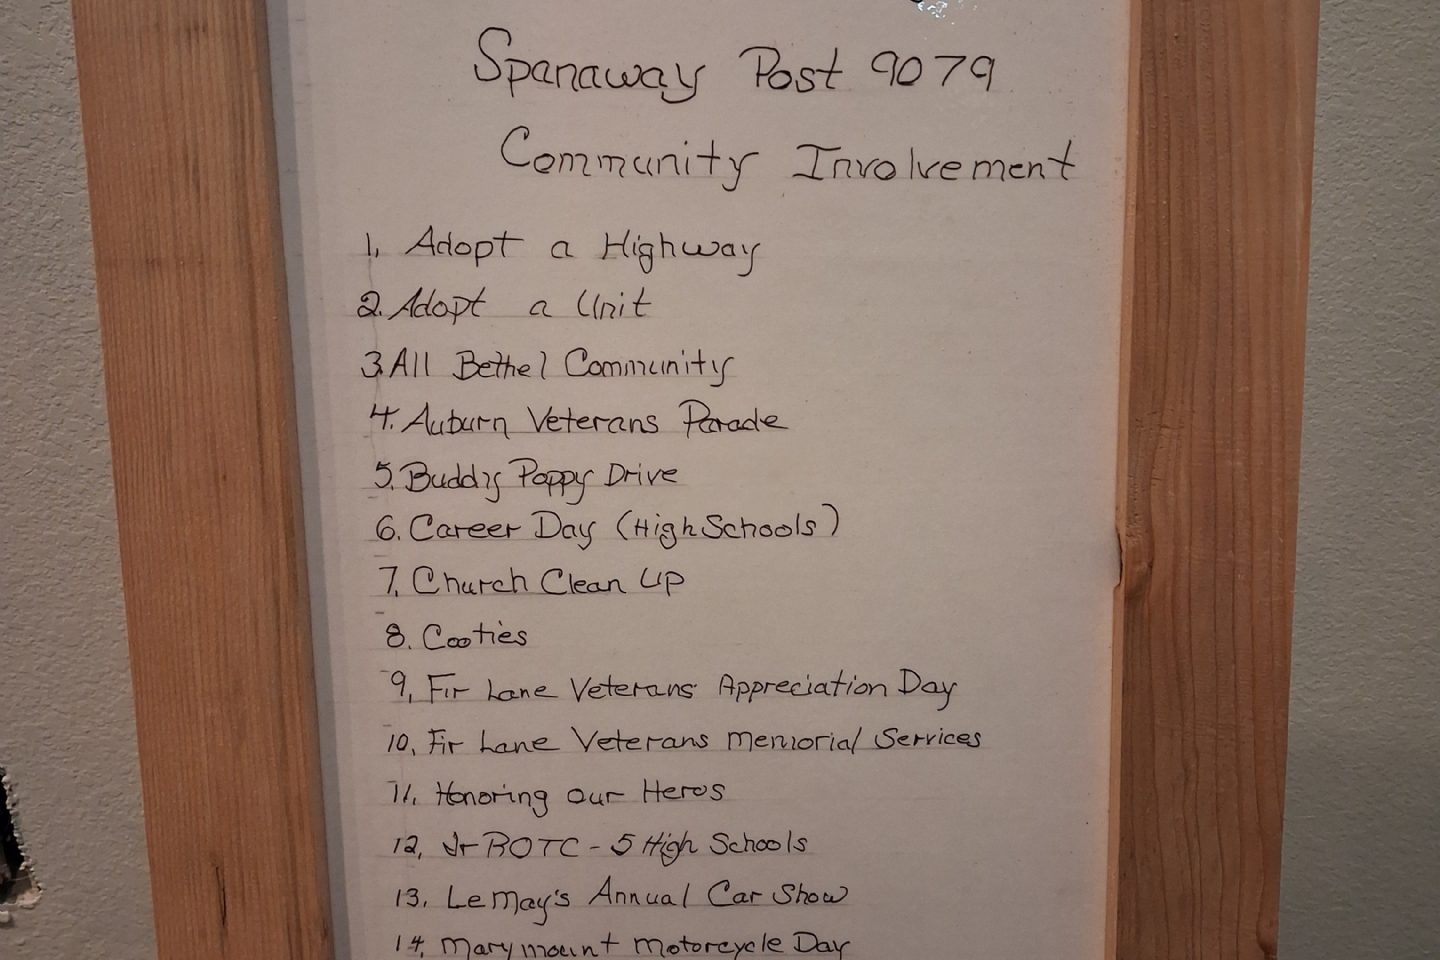 Spanaway Post 9079
Community Involvement
1. Adopt a Highway
2. Adopt a Unit
3. All Bethel Community
4. Auburn Veterans Parade
5. Buddy Poppy Drive
6. Career Day (High Schools)
7. Church Clean Up
8. Cooties
9. Fir Lane Veterans Appreciation Day
10. Fir Lane Veterans Memorial Services
11. Honoring our Heros
12. Jr ROTC - 5 High Schools
13. LeMay's Annual Car Show
14. Marymount Motorcycle Day